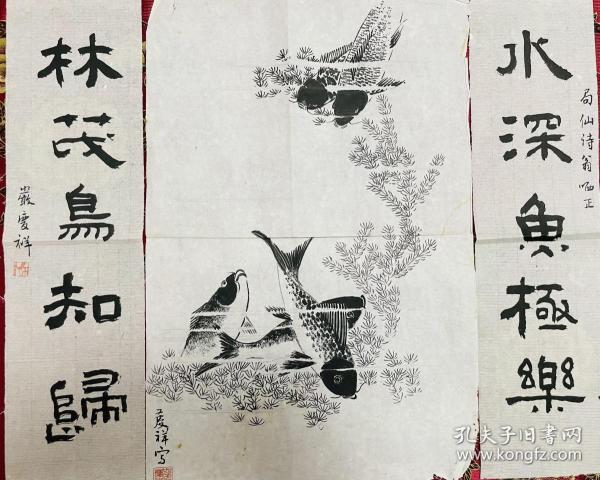 水深魚極樂
局仙诗翁哂正
林茂鳥知歸
嚴慶祥
慶祥寫
孔夫子旧书网
www.kongfz.com